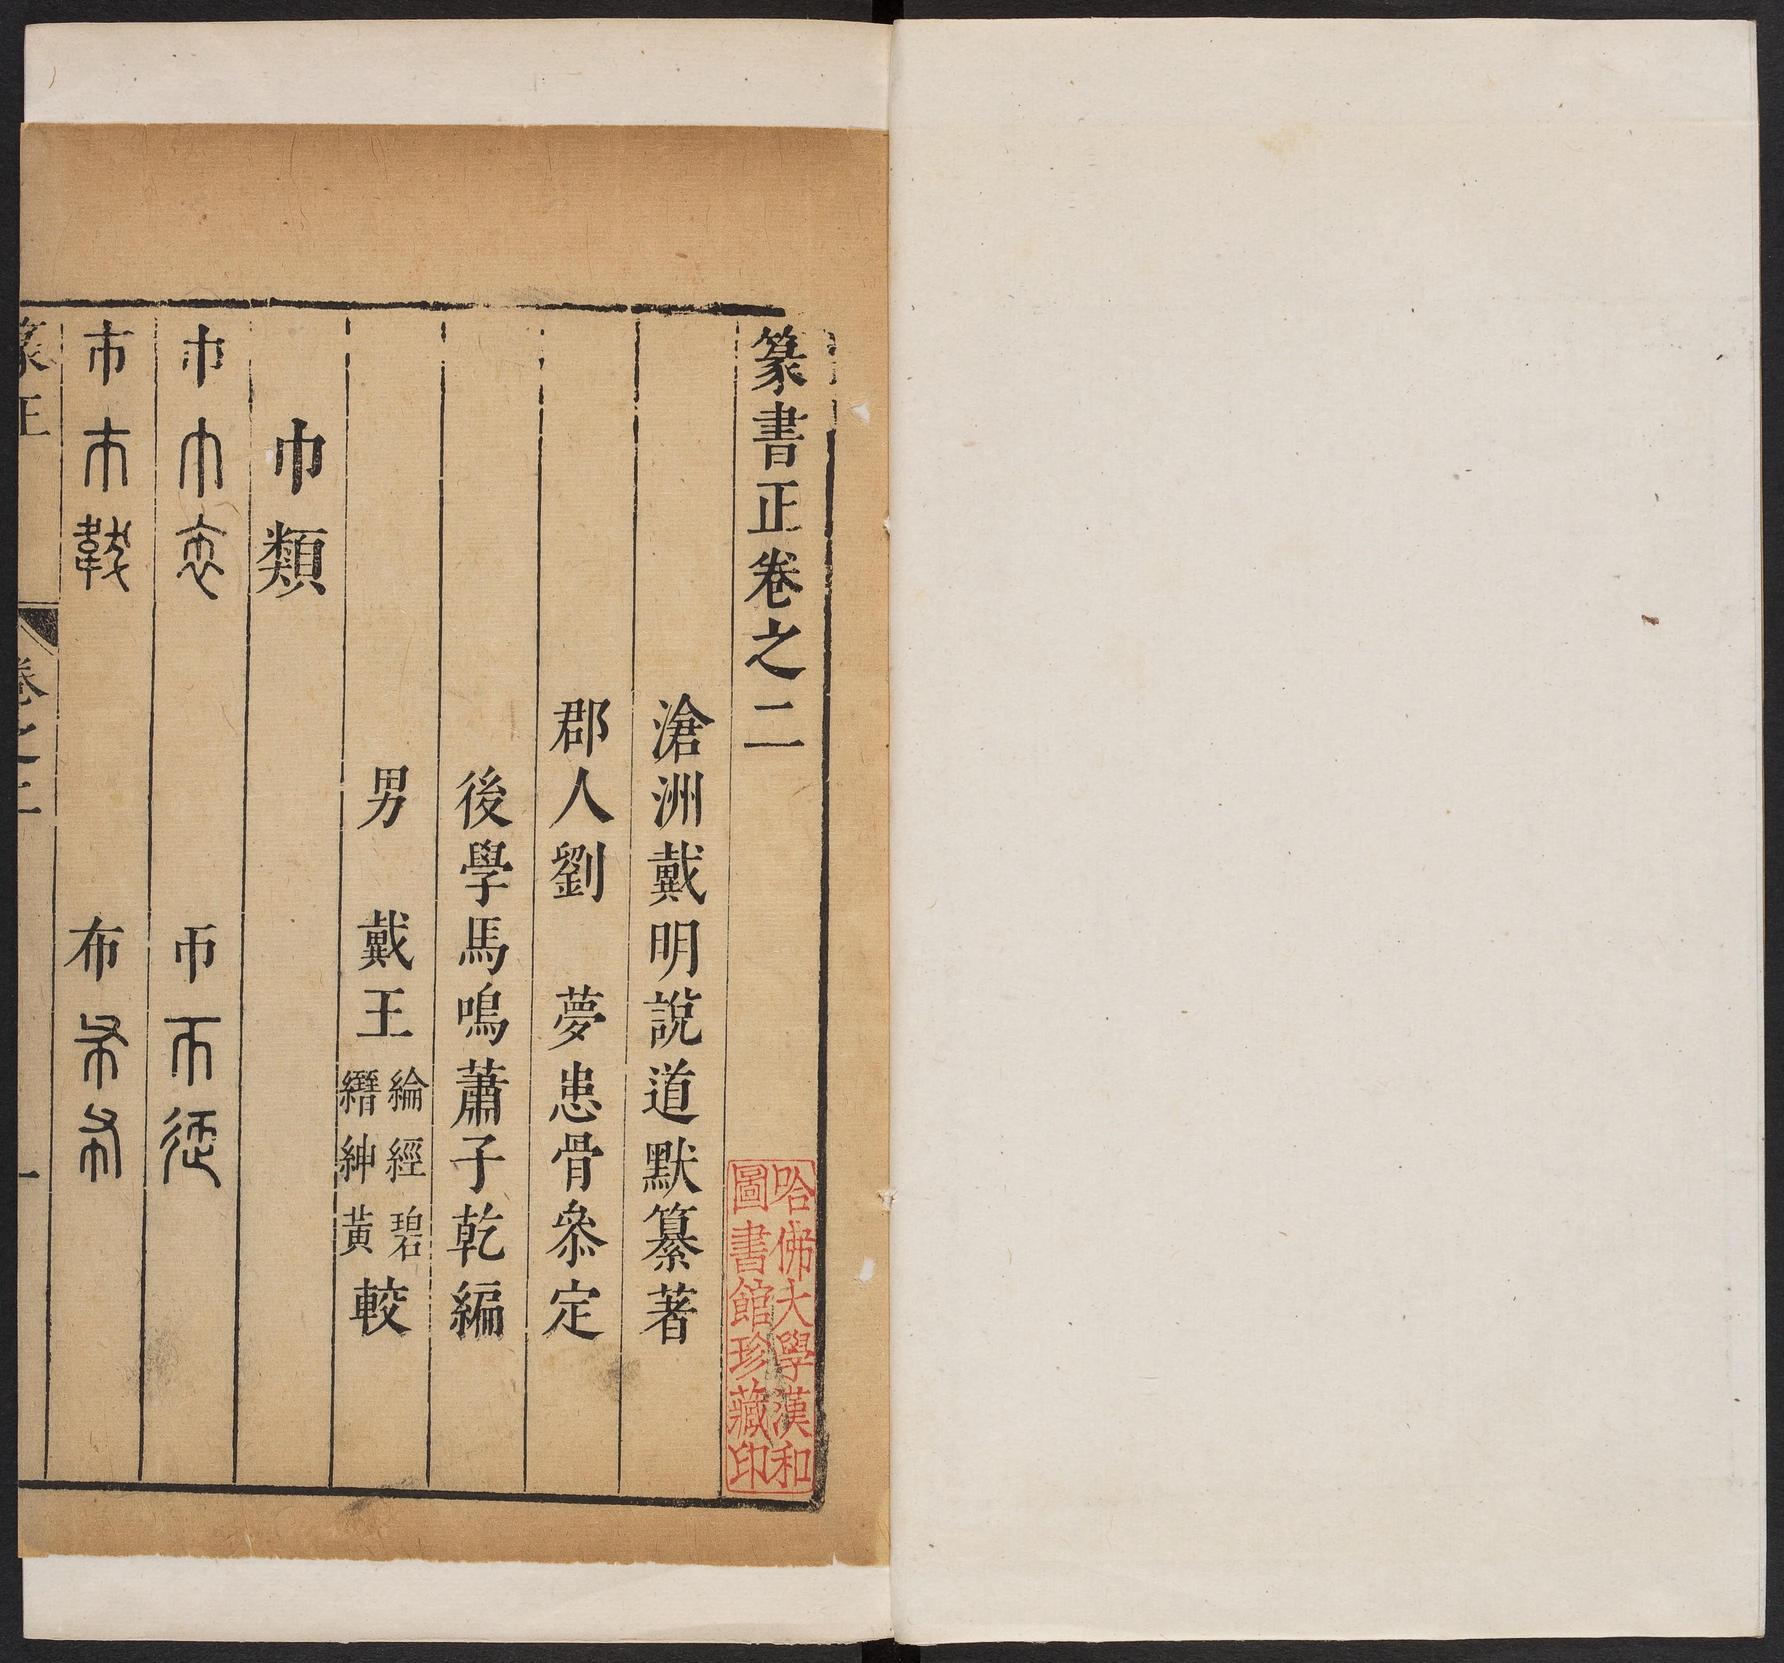 篆書正卷之二
滄洲戴明說道默纂著
郡人劉　夢患骨叅定
後學馬鳴蕭子乾編
男　戴王綸經碧
縉紳黃較
巾類
巾
帀
巿
布
篆正　卷之二　一
哈佛大學漢和
圖書館珍藏印